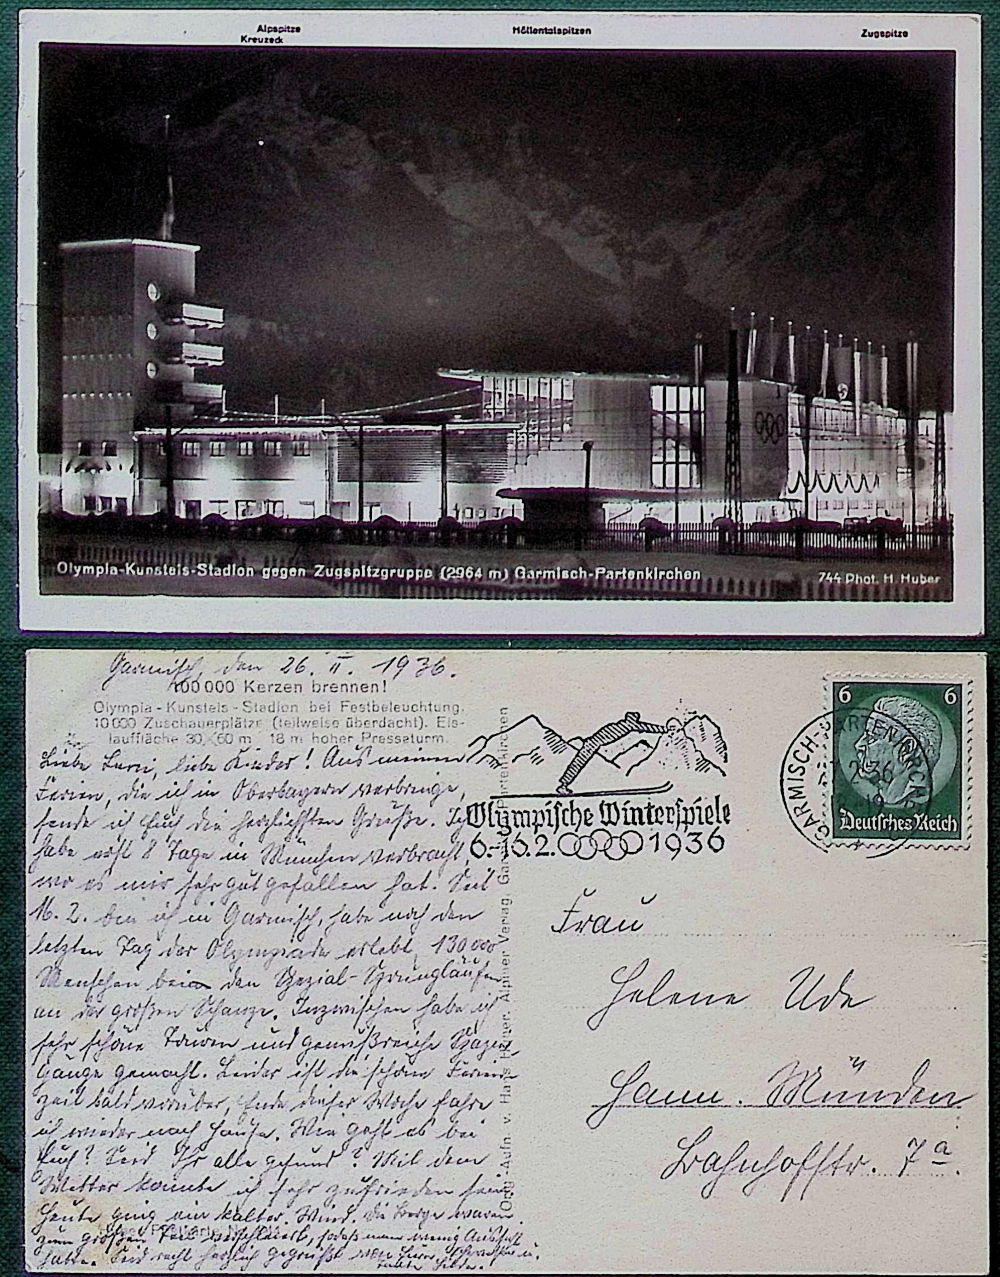 Alpspitze
Kreuzeck
Höllentalspitzen
Zugspitze
Olympia-Kunsteis-Stadion gegen Zugspitzgruppe (2964 m) Garmisch-Partenkirchen
744 Phot. H. Huber
Garmisch, den 26. II. 1936.
100 000 Kerzen brennen!
Olympia-Kunsteis-Stadion bei Festbeleuchtung.
10 000 Zuschauerplätze (teilweise überdacht). Eis-
lauffläche 30×60 m 18 m hoher Presseturm.
Liebe liebe Kinder! Aus meinen
Ferien, die ich in Oberbayern verbringe,
sende ich Euch die herzlichsten Grüße. Ich
habe erst 8 Tage in München verbracht,
wo es mir sehr gut gefallen hat. Seit
16. 2. bin ich in Garmisch, habe noch den
letzten Tag der Olympiade erlebt, 130 000
Menschen bei den Spezial-Sprungläufen
an der großen Schanze. Inzwischen habe ich
sehr schöne Touren und genußreiche Spazier-
gänge gemacht. Leider ist die schöne Ferien-
zeit bald vorüber, Ende dieser Woche fahre
ich wieder nach Hause. Wie geht es bei
Euch? Seid Ihr alle gesund? Mit dem
Wetter konnte ich sehr zufrieden sein
Heute ging ein kalter Wind, die Berge waren
zum großen Teil verschleiert, sodass man wenig Aussicht
hatte. Seid recht herzlich gegrüßt von
Olympische Winterspiele
6.-16.2. 1936
GARMISCH-PARTENKIRCHEN
6 6
Deutsches Reich
Frau
Helene Ude
Hann. Münden
Bahnhofstr. 7a.